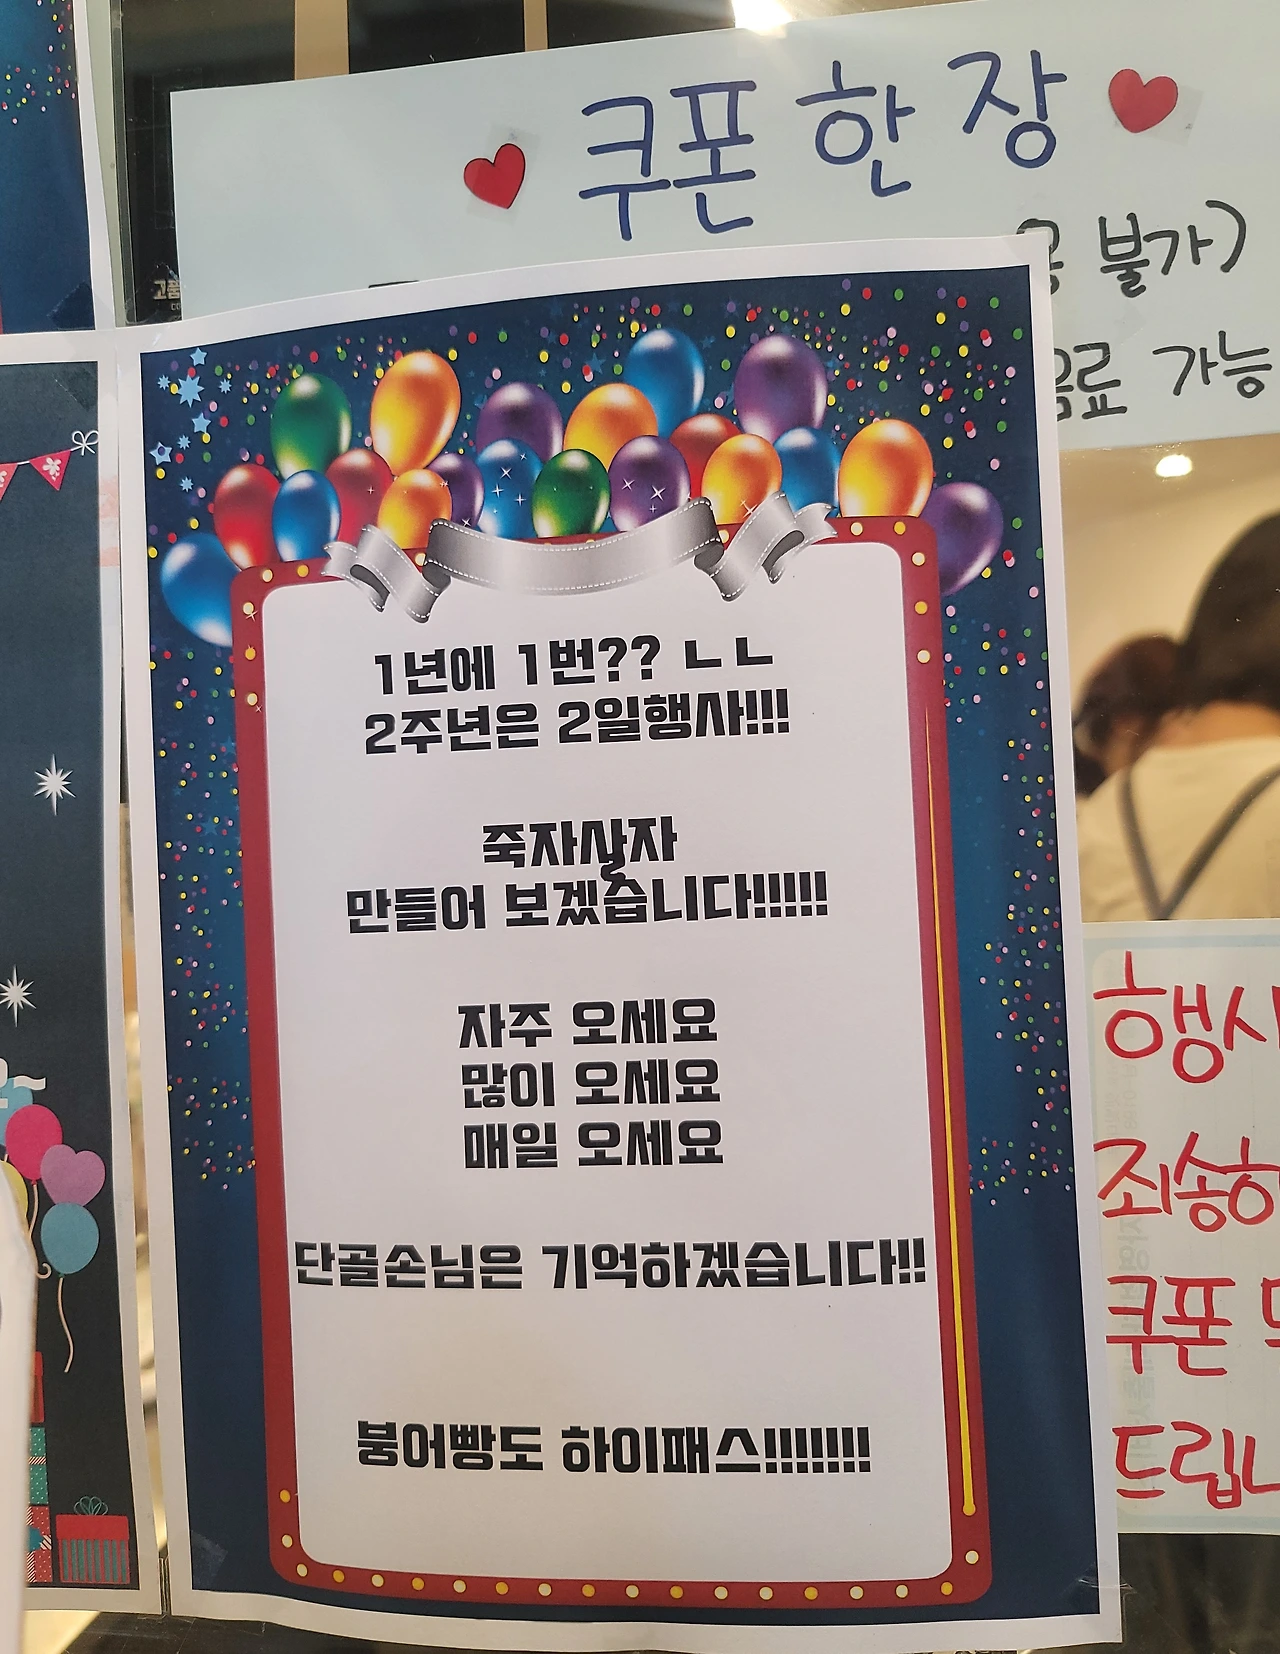 쿠폰 한 장
불가)
음료 가능
고품
1년에 1번?? ㄴㄴ
2주년은 2일행사!!!
죽자살자
만들어 보겠습니다!!!!!
자주 오세요
많이 오세요
매일 오세요
단골손님은 기억하겠습니다!!
붕어빵도 하이패스!!!!!!!!
행사
죄송하
쿠폰
드립니